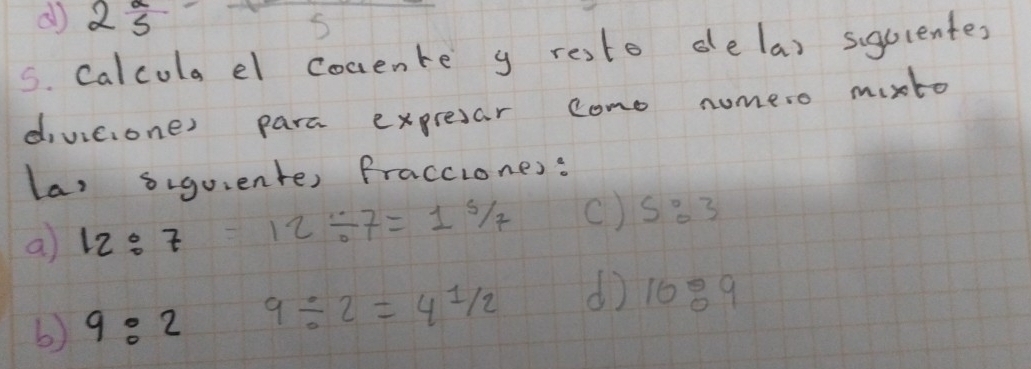 d) 2 2/5 = 5
5. Calcula el cociente y resto de las siguientes
diviciones para expresar como numero mixto
las siguientes fracciones:
a) 12 : 7 = 12 ÷ 7 = 1 5/7 c) 5 : 3
b) 9 : 2 9 ÷ 2 = 4 1/2 d) 10 : 9